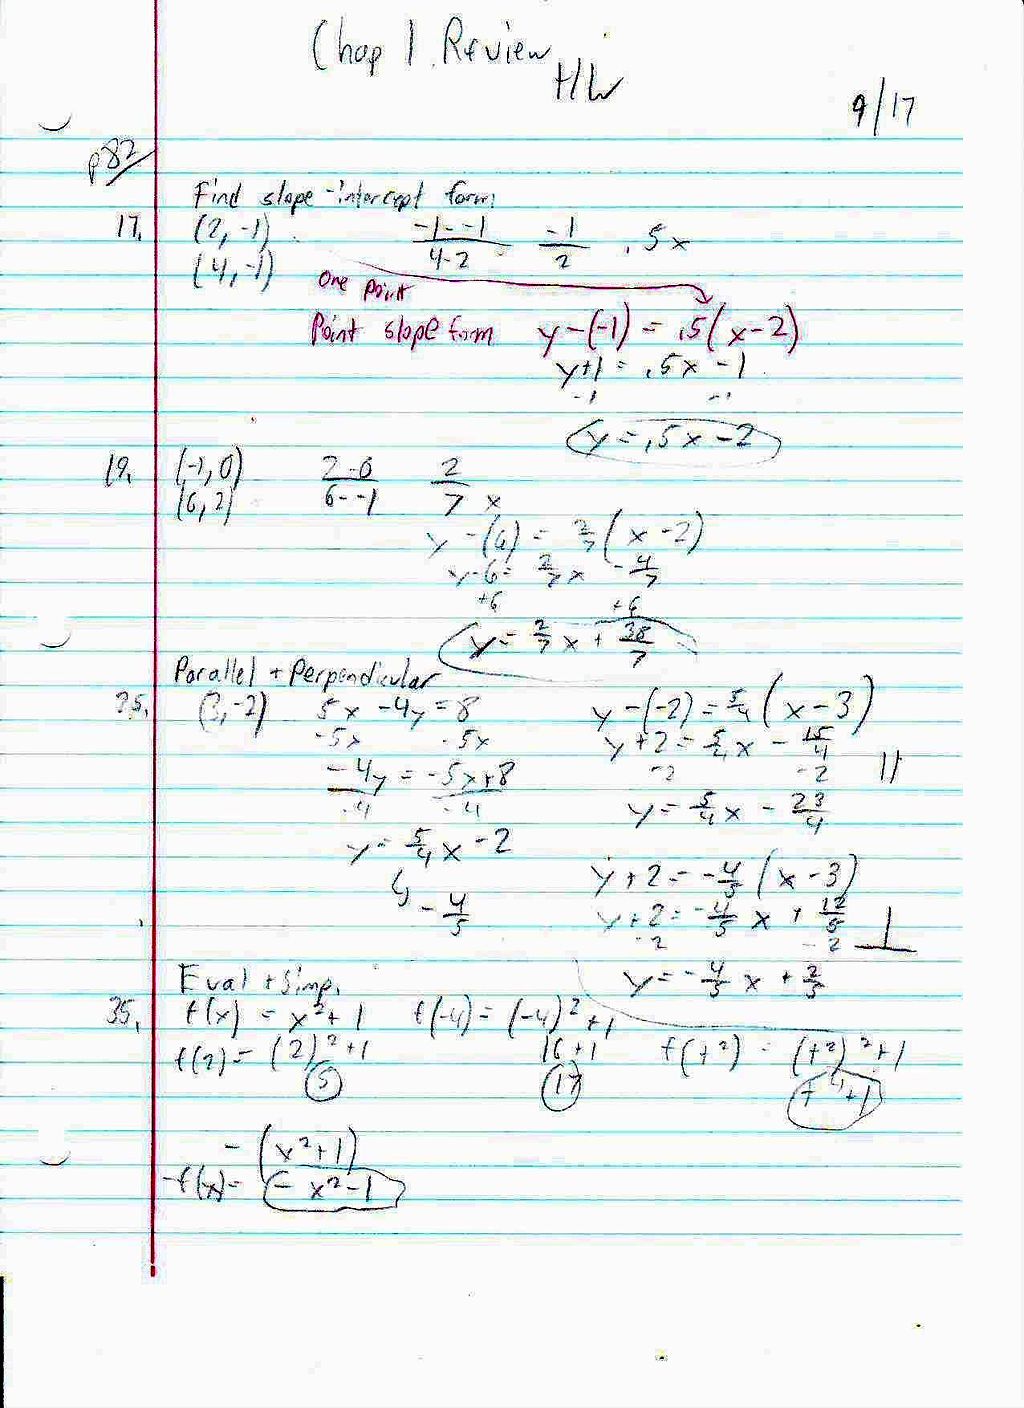 Chap 1 Review
H/W
9/17
p82
Find slope-intercept form
17. (2, -1) -1--1/4-2 -1/2 .5x
(4, -1)
One point
Point slope form y-(-1) = .5(x-2)
y+1 = .5x -1
-1 -1
y = .5x -2
19. (-1, 0) 2-0/6--1 2/7 x
(6, 2)
y-(6) = 2/7(x-2)
y-6 = 2/7x - 4/7
+6 +6
y = 2/7x + 38/7
Parallel + Perpendicular
25. (3, -2) 5x -4y = 8 y-(-2) = 5/4(x-3)
-5x -5x y+2 = 5/4x - 15/4
-4y = -5x+8 -2 -2 ||
-4 -4 y = 5/4x - 23/4
y = 5/4x -2
y+2 = -4/5(x-3)
-4/5 y+2 = -4/5x + 12/5
-2 -2 ⊥
y = -4/5x + 2/5
Eval + Simp.
35. f(x) = x²+1 f(-4) = (-4)²+1
f(2) = (2)²+1 16+1 f(t²) = (t²)²+1
5 17 t⁴+1
-(x²+1)
-f(x) = -x²-1